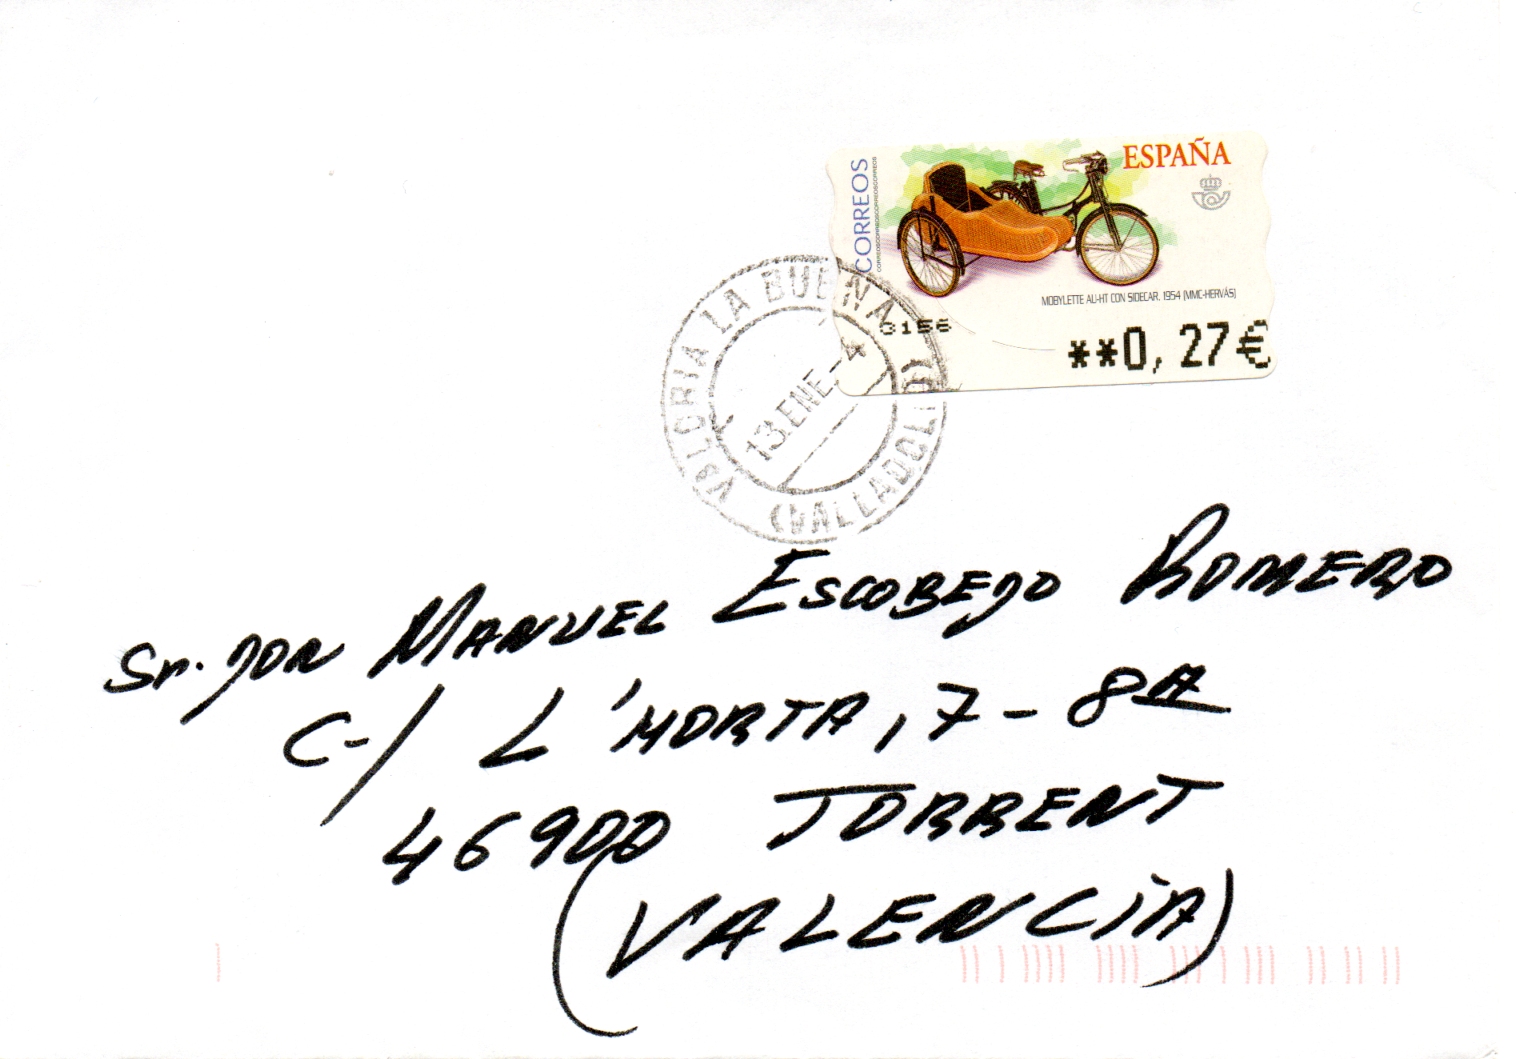 ESPAÑA
CORREOS
MOBYLETTE AU-HT CON SIDECAR. 1954 (MMC-HERVÁS)
0156
**0,27€
VALORIA LA BUENA
13.ENE-4
(VALLADOLID)
Sr. DON MANUEL ESCOBEDO ROMERO
C-/ L'HORTA, 7-8ª
46900 TORRENT
(VALENCIA)